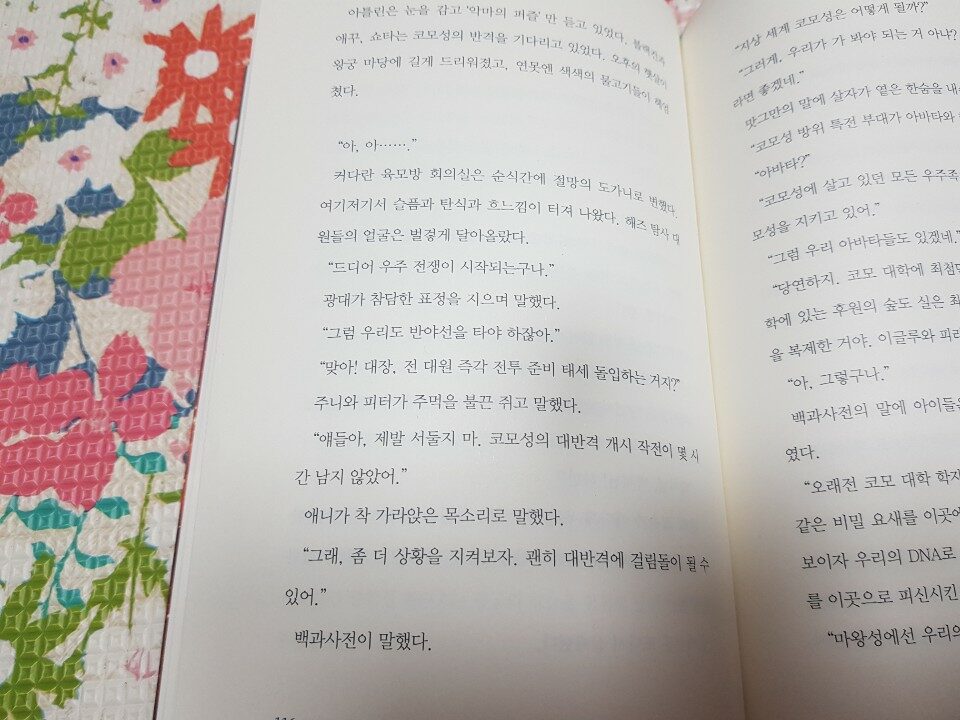 아틀린은 눈을 감고 '악마의 퍼즐'만 듣고 있었다. 블랙잭과
애꾸, 쇼타는 코모성의 반격을 기다리고 있었다. 오후의 햇살이
왕궁 마당에 길게 드리워졌고, 연못엔 색색의 물고기들이 헤엄
쳤다.
“아, 아…….”
커다란 육모방 회의실은 순식간에 절망의 도가니로 변했다.
여기저기서 슬픔과 탄식과 흐느낌이 터져 나왔다. 해즈 탐사 대
원들의 얼굴은 벌겋게 달아올랐다.
“드디어 우주 전쟁이 시작되는구나.”
광대가 참담한 표정을 지으며 말했다.
“그럼 우리도 반야선을 타야 하잖아.”
“맞아! 대장, 전 대원 즉각 전투 준비 태세 돌입하는 거지?”
주니와 피터가 주먹을 불끈 쥐고 말했다.
“얘들아, 제발 서둘지 마. 코모성의 대반격 개시 작전이 몇 시
간 남지 않았어.”
애니가 착 가라앉은 목소리로 말했다.
“그래, 좀 더 상황을 지켜보자. 괜히 대반격에 걸림돌이 될 수
있어.”
백과사전이 말했다.
“지상 세계 코모성은 어떻게 될까?”
“그러게, 우리가 가 봐야 되는 거 아냐?
라면 좋겠네.”
맛그만의 말에 살자가 옅은 한숨을 내
“코모성 방위 특전 부대가 아바타와
“아바타?”
“코모성에 살고 있던 모든 우주족
모성을 지키고 있어.”
“그럼 우리 아바타들도 있겠네.”
“당연하지. 코모 대학에 최첨단
학에 있는 후원의 숲도 실은 최
을 복제한 거야. 이글루와 피라
“아, 그렇구나.”
백과사전의 말에 아이들은
였다.
“오래전 코모 대학 학자
같은 비밀 요새를 이곳에
보이자 우리의 DNA로
를 이곳으로 피신시킨
“마왕성에선 우리의